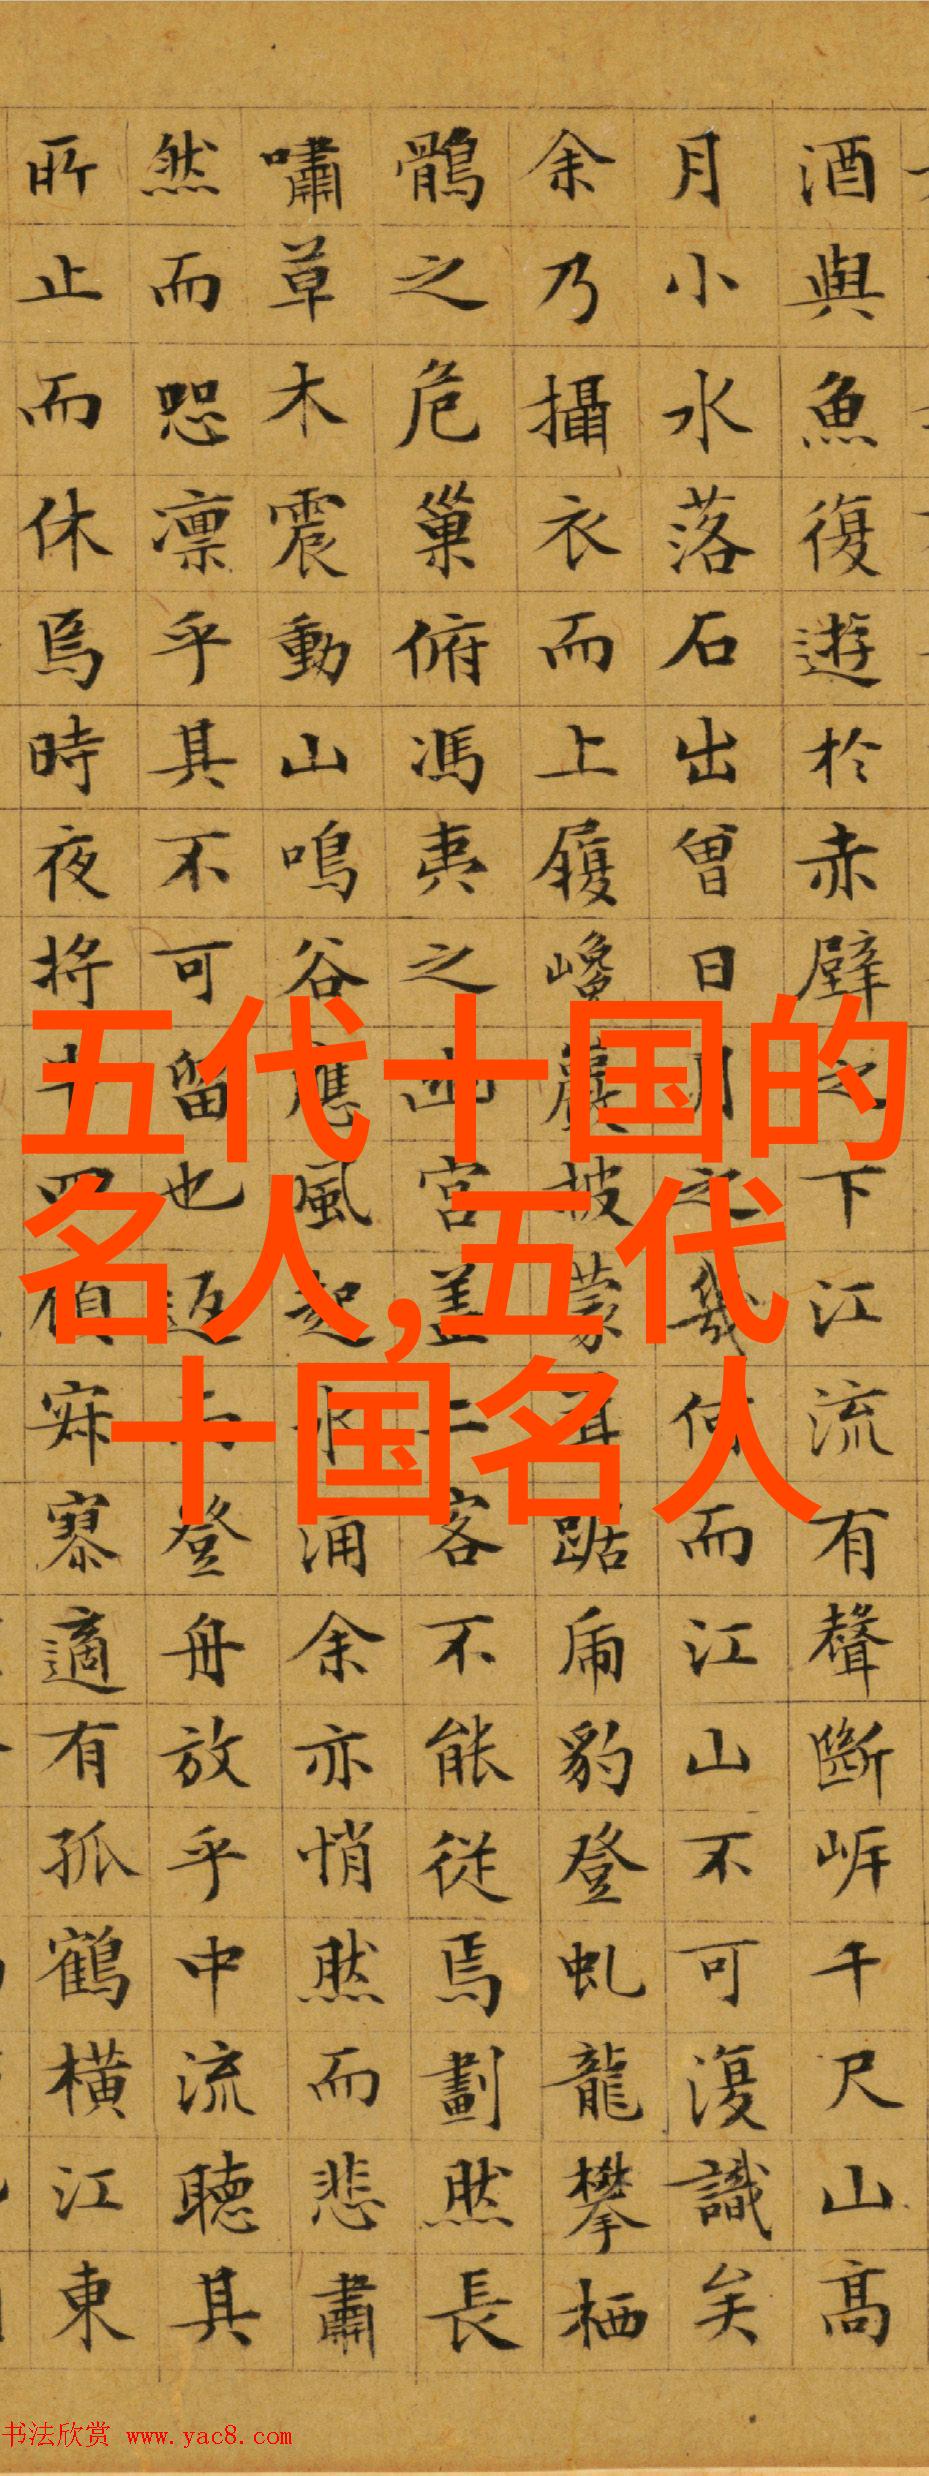 酒與魚復遊於赤壁之下江流有聲斷岸千尺山高
月小水落石出曾日月之幾何而江山不可復識矣
余乃攝衣而上履巉巖披蒙茸踞虎豹登虬龍攀栖
鶻之危巢俯馮夷之幽宮蓋二客不能從焉劃然長
嘯草木震動山鳴谷應風起水涌余亦悄然而悲肅
然而恐凛乎其不可留也返而登舟放乎中流聽其
所止而休焉時夜將半四顧寂寥適有孤鶴橫江東
五代十国的
名人,五代
十国名人
书法欣赏 www.yac8.com